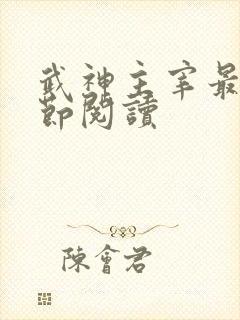 武神主宰最
節閱讀
陳會君